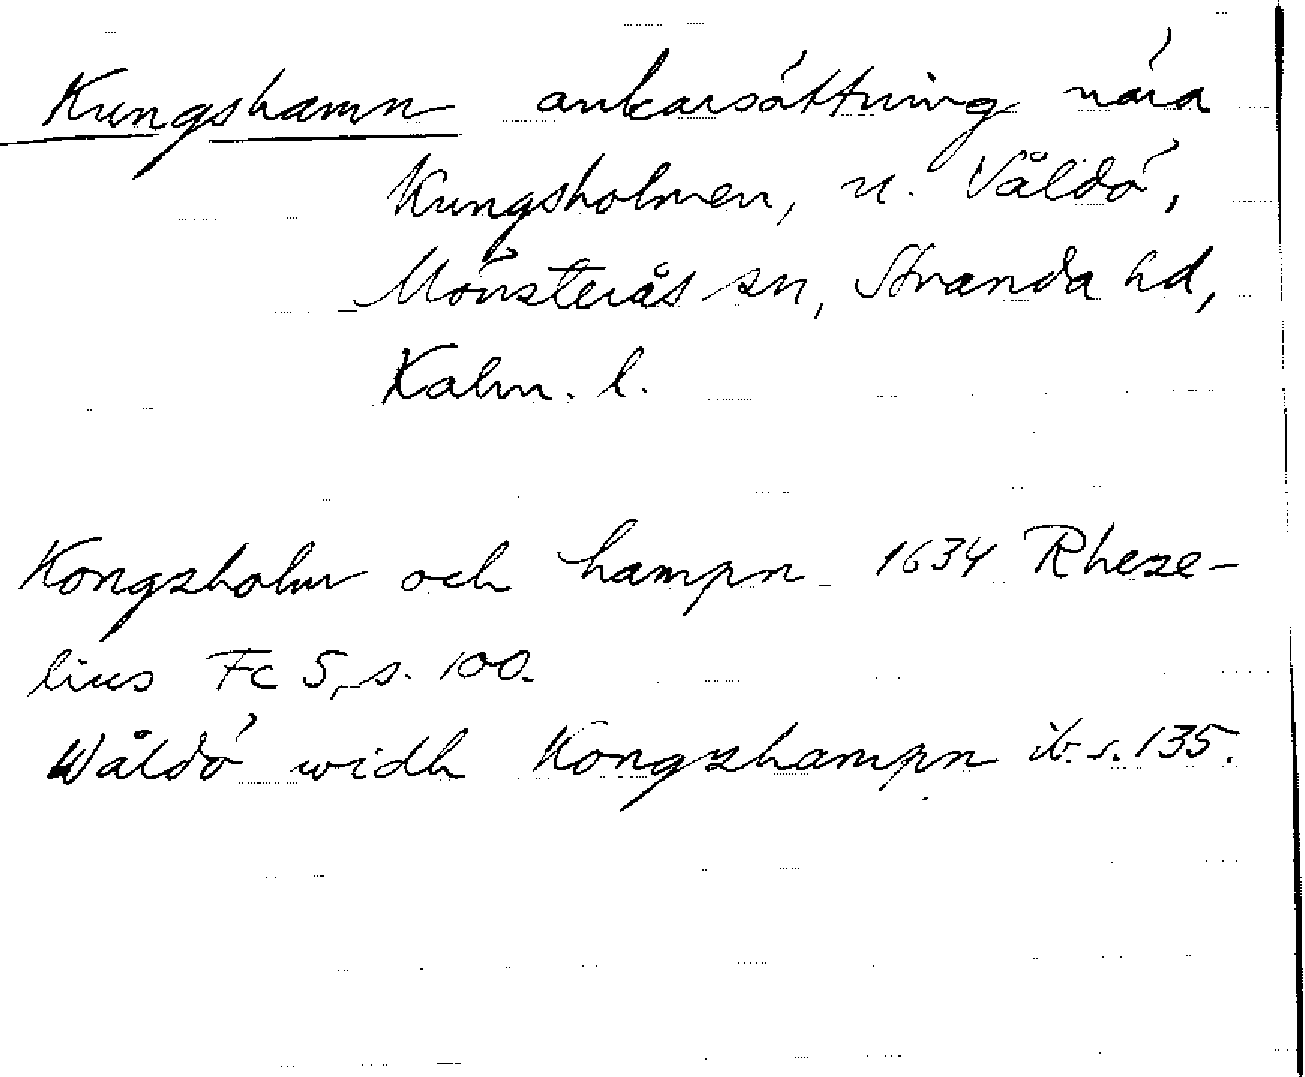 Kungshamn ankarsättning nära
Kungsholmen, n. Våldö,
Mönsterås sn, Stranda hd,
Kalm. l.
Kongzholm och hampn 1634 Rheze-
lius Fc 5, s. 100.
Wåldö widh Kongzhampn ib. s. 135.